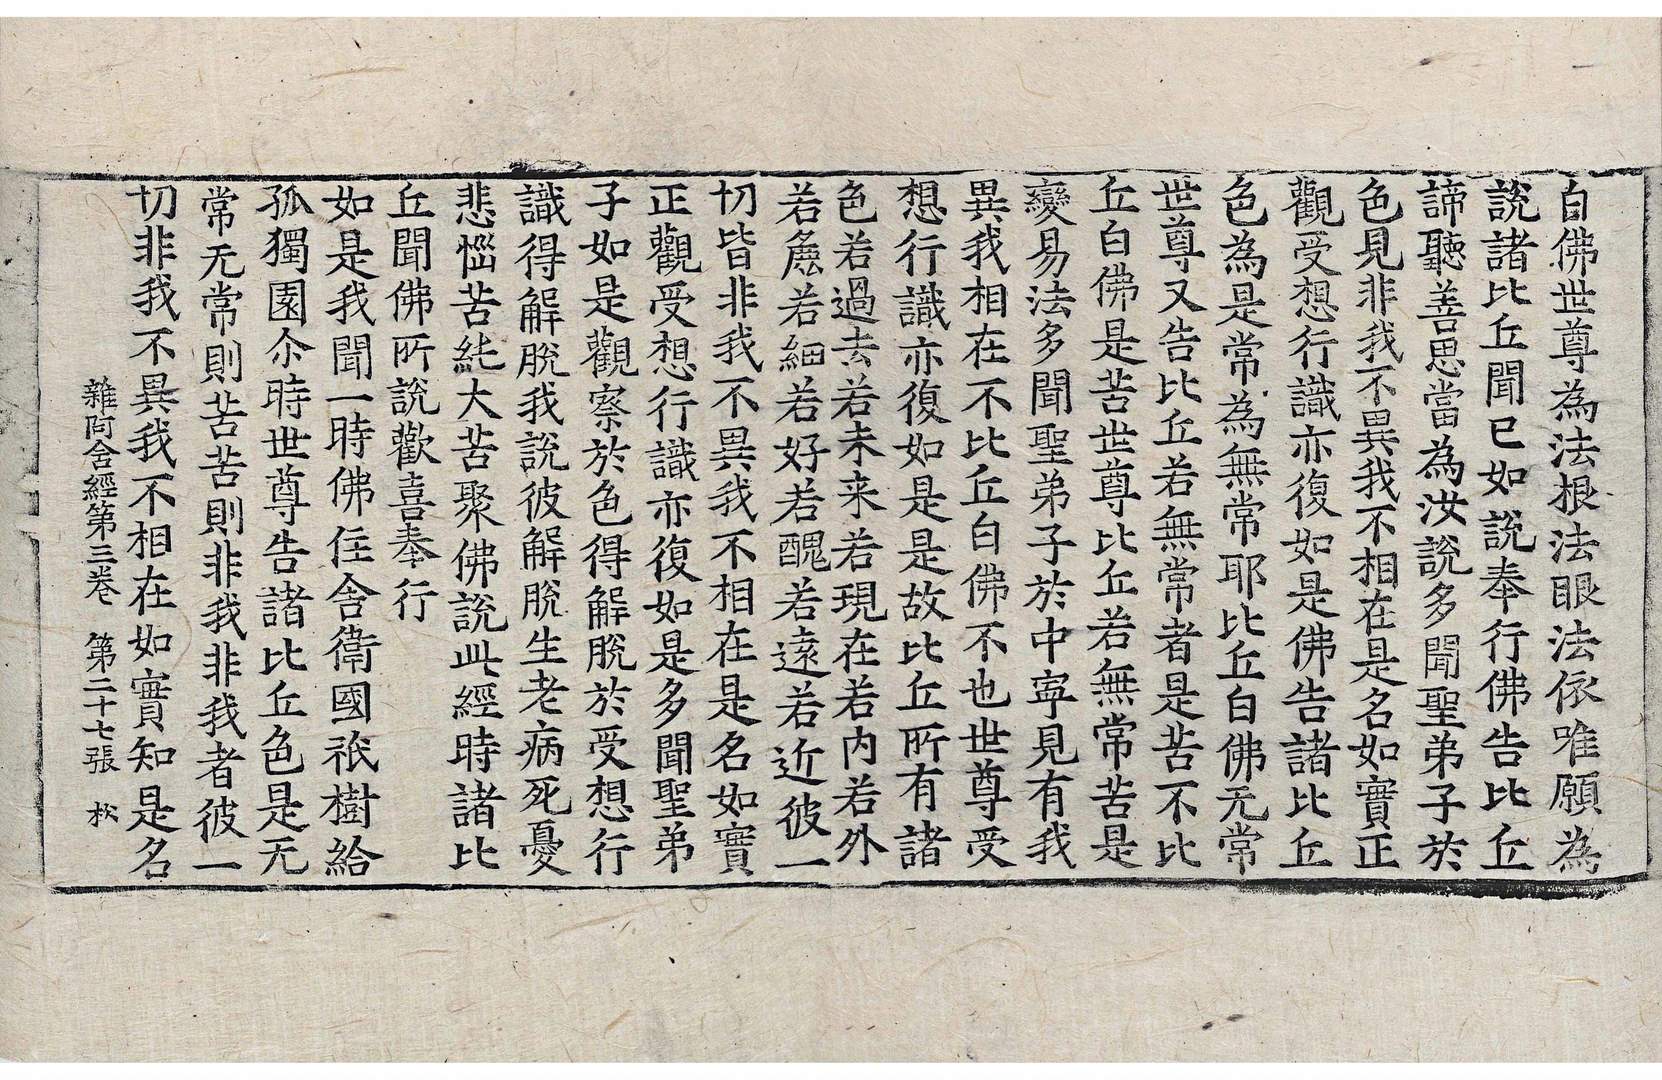 白佛世尊為法根法眼法依唯願為
說諸比丘聞已如說奉行佛告比丘
諦聽善思當為汝說多聞聖弟子於
色見非我不異我不相在是名如實正
觀受想行識亦復如是佛告諸比丘
色為是常為無常耶比丘白佛无常
世尊又告比丘若無常者是苦不比
丘白佛是苦世尊比丘若無常苦是
變易法多聞聖弟子於中寧見有我
異我相在不比丘白佛不也世尊受
想行識亦復如是是故比丘所有諸
色若過去若未来若現在若内若外
若麁若細若好若醜若遠若近彼一
切皆非我不異我不相在是名如實
正觀受想行識亦復如是多聞聖弟
子如是觀察於色得解脫於受想行
識得解脫我說彼解脫生老病死憂
悲惱苦純大苦聚佛說此經時諸比
丘聞佛所說歡喜奉行
如是我聞一時佛住舍衛國祇樹給
孤獨園尒時世尊告諸比丘色是无
常无常則苦苦則非我非我者彼一
切非我不異我不相在如實知是名
雜阿含經第三卷 第二十七張 松